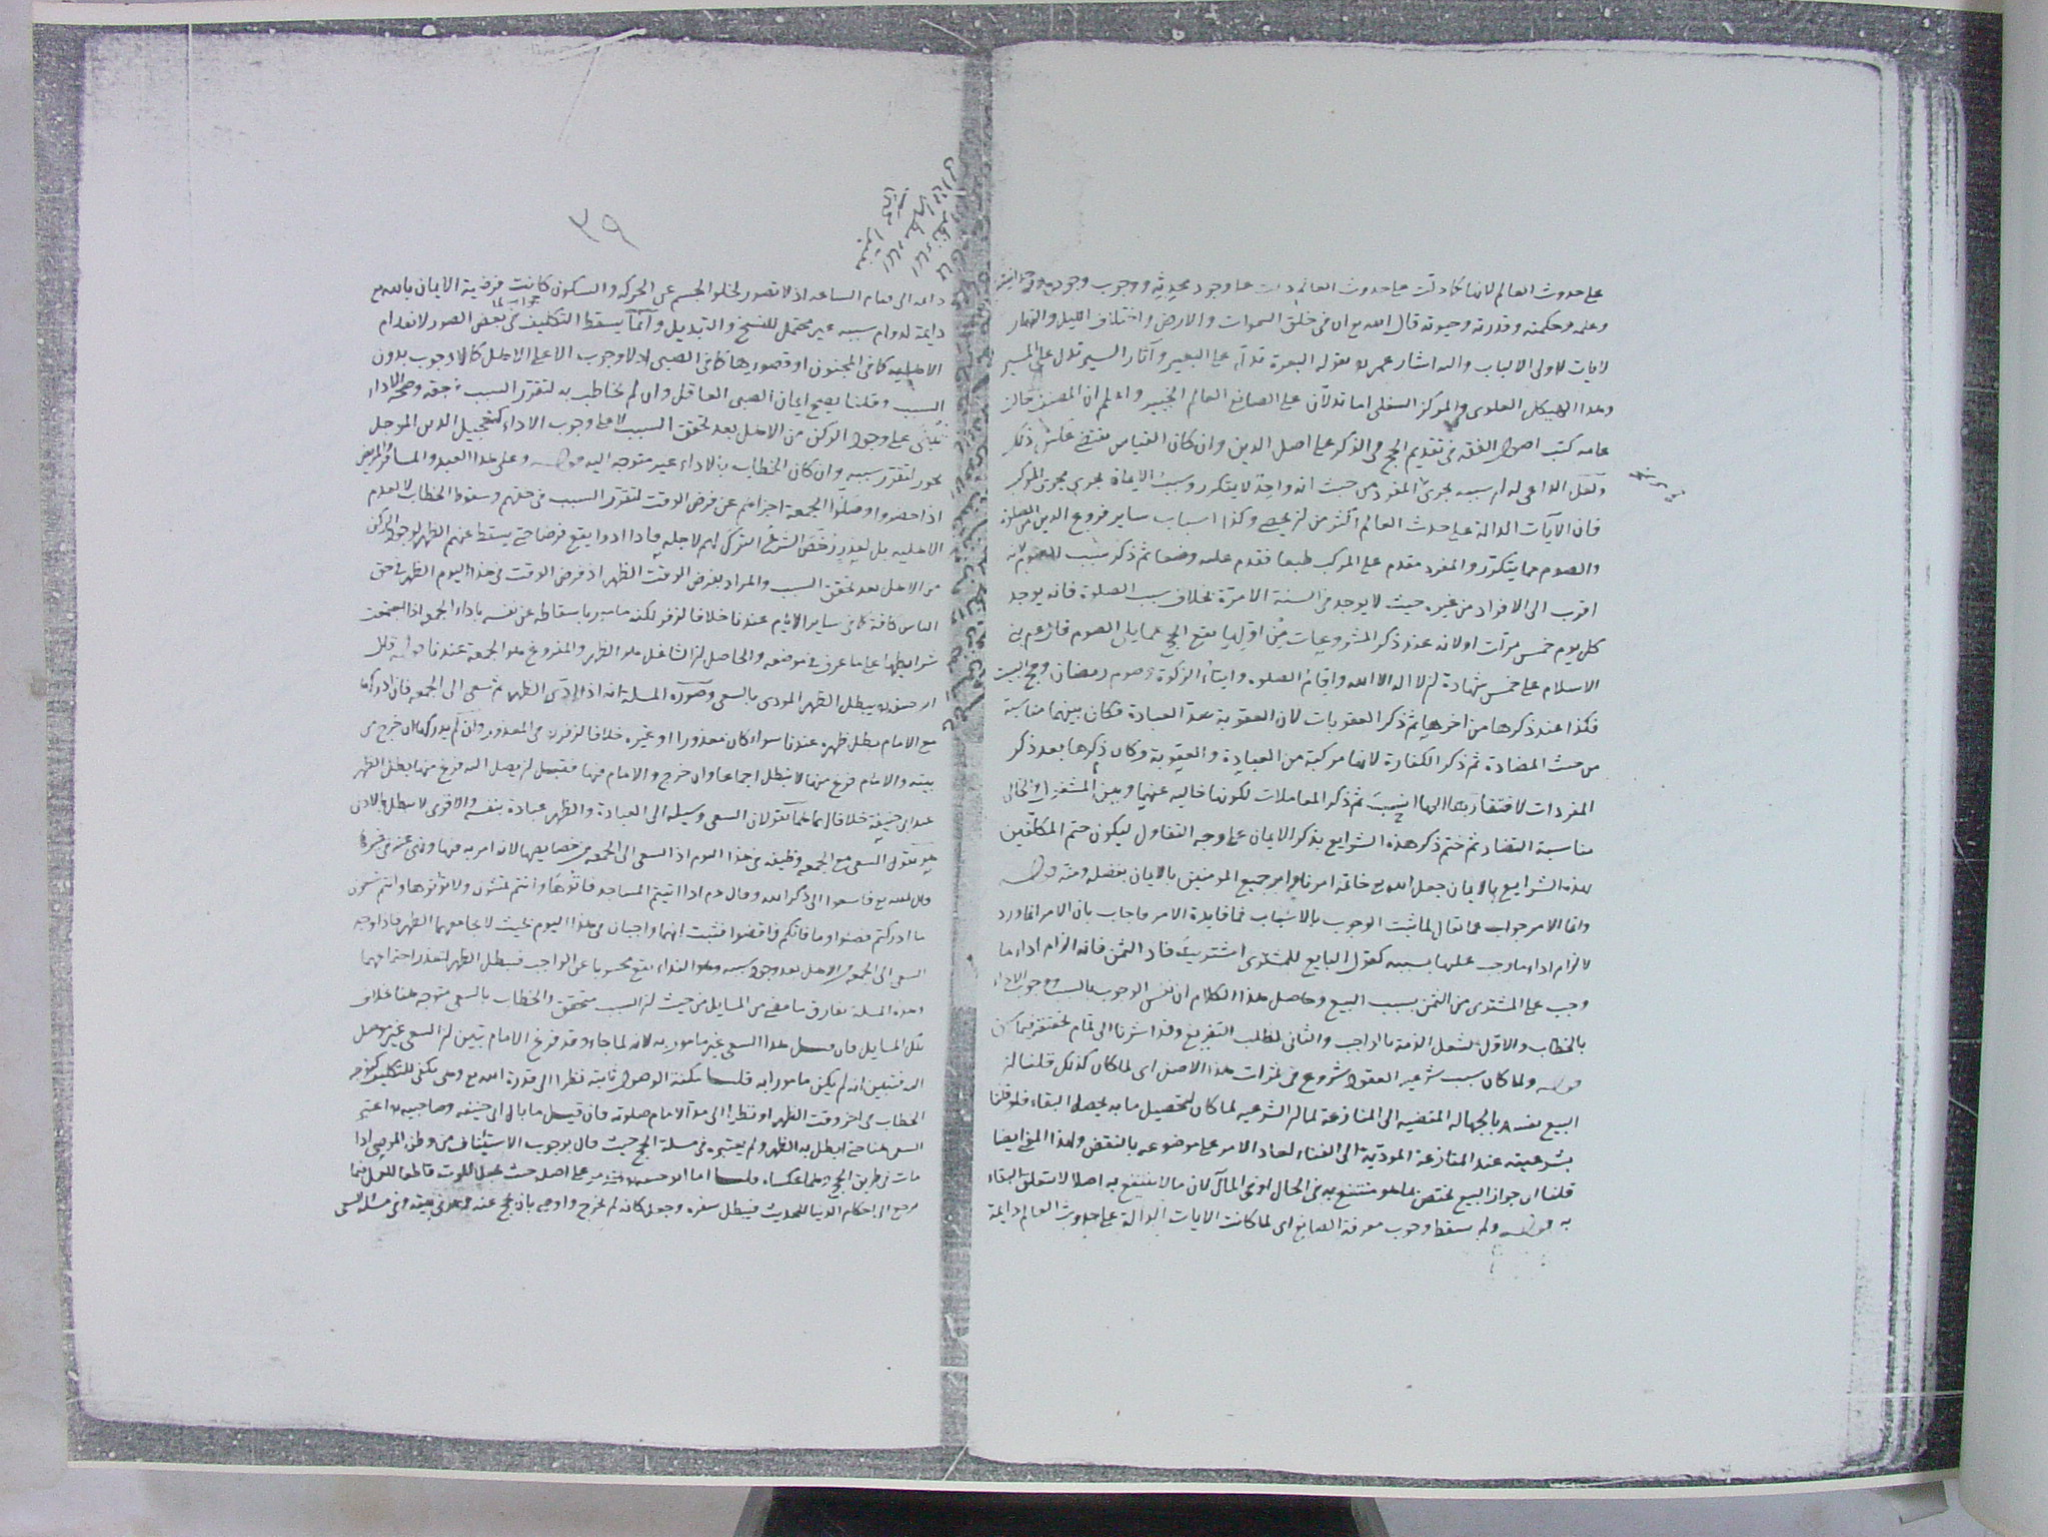 على حدوث العالم لانها كما دلت على حدوث العالم دلت على وجود محدثه ووجوب وجوده ووحدانيته
وعلمه وحكمته وقدرته وحيوته قال الله تع ان فى خلق السموات والارض واختلاف الليل والنهار
لايات لاولى الالباب واليه اشار عمر بقوله البعرة تدل على البعير وآثار السير تدل على المسير
وهذا الهيكل العلوى والمركز السفلى اما تدلان على الصانع العالم الخبير واعلم ان المصنف خالف
عامه كتب اصول الفقه فى تقديم الحج فى الذكر على اصل الدين وان كان القياس يقتضى عكس ذلك
ولعل الداعى له ان سببه يجرى المفرد من حيث انه واحد لا يتكرر وسبب الايمان يجرى مجرى المركب
فان الآيات الدالة على حدث العالم اكثر من ان يحصى وكذا اسباب ساير فروع الدين من الصلوة
والصوم مما يتكرر والمفرد مقدم على المركب طبعا فقدم عليه وضعا ثم ذكر سبب الصوم لانه
اقرب الى الافراد من غيره حيث لا يوجد فى السنة الا مرة بخلاف سبب الصلوة فانه يوجد
كل يوم خمس مرات اولانه عند ذكر المشروعيات من اولها يقع الحج مما يلى الصوم قال عم بنى
الاسلام على خمس شهادة ان لا اله الا الله واقام الصلوه وايتاء الزكوة وصوم رمضان وحج البيت
فكذا عند ذكرها من اخرها ثم ذكر العقوبات لان العقوبة ضد العبادة فكان بينهما مناسبة
من حيث المضادة ثم ذكر الكفارة لانها مركبة من العبادة والعقوبة وكان ذكرها بعد ذكر
المفردات لافتقارها اليها انسب ثم ذكر المعاملات لكونها خاليه عنهما وبين المشغول والخالى
مناسبة التضاد ثم ختم ذكر هذه الشرايع بذكر الايمان على وجه التفاول ليكون ختم المكلفين
بهذه الشرايع بالايمان جعل الله تع خاتمة امرنا وامر جميع المومنين بالايمان بفضله ومنه قوله
وانما الامر جواب عما يقال لما ثبت الوجوب بالاسباب فما فايدة الامر فاجاب بان الامر انما ورد
لالزام اداء ما وجب علينا بسببه كقول البايع للمشترى اشتريت فاد الثمن فانه الزام اداء ما
وجب على المشترى من الثمن بسبب البيع وحاصل هذا الكلام ان نفس الوجوب بالسبب ووجوب الاداء
بالخطاب والاول لشغل الذمة بالواجب والثانى لطلب التفريغ وقد اشرنا الى تمام تحقيقه فيما
قوله ولما كان سبب شرعيه العقود شروع فى ثمرات هذا الاصل اى لما كان كذلك قلنا ان
البيع يفسد بالجهالة المفضيه الى المنازعة لما ان الشرعيه لما كان لتحصيل ما به يحصل البقاء فلو قلنا
بشرعيته عند المنازعة المودية الى الفناء لعاد الامر على موضوعه بالنقض ولهذا المعنى ايضا
قلنا ان جواز البيع يختص بما هو منتفع به فى الحال او فى المآل لان مالا ينتفع به اصلا لا يتعلق البقاء
به قوله ولم يسقط وجوب معرفة الصانع اى لما كانت الايات الدالة على حدوث العالم دايمة
٣٩
دايمه الى قيام الساعه اذ لا تصور لخلو الجسم عن الحركه والسكون كانت فرضية الايمان بالله تع
جواب لما
دايمة لدوام سببه غير محتمل للنسخ والتبديل وانما يسقط التكليف فى بعض الصور لانعدام
الاهليه كما فى المجنون او قصورها كما فى الصبى اذ لا وجوب الا على الاهل كما لا وجوب بدون
السبب وقلنا يصح ايمان الصبى العاقل وان لم يخاطب به لتقرر السبب فى حقه وصحة الاداء
تبتنى على وجود الركن من الاهل بعد تحقق السبب لا على وجوب الاداء كتعجيل الدين الموجل
يجوز لتقرر سببه وان كان الخطاب بالاداء غير متوجه اليه قوله وعلى هذا العبد والمسافر والمريض
اذا حضروا وصلوا الجمعة اجزاهم عن فرض الوقت لتقرر السبب فى حقهم وسقوط الخطاب لا لعدم
الاهليه بل لعذر رخص الشرع الترك لهم لاجله فاذا ادوا يقع فرضا حتى يسقط عنهم الظهر لوجود الركن
من الاهل بعد تحقق السبب والمراد بفرض الوقت الظهر اذ فرض الوقت فى هذا اليوم الظهر فى حق
الناس كافة كما فى ساير الايام عندنا خلافا لزفر لكنه مامور باسقاطه عن نفسه باداء الجمعه اذا استجمعت
شرايطها على ما عرف فى موضعه والحاصل ان الشاغل هو الظهر والمفروغ هو الجمعة عندنا قوله قال
ابو حنيفه يبطل الظهر المودى بالسعى وصورة المسلة انه اذا ادى الظهر ثم سعى الى الجمعه فان ادركها
مع الامام يبطل ظهره عندنا سواء كان معذورا او غيره خلافا لزفر فى المعذور وان لم يدركها بان خرج من
بيته والامام فرغ منها لا يبطل اجماعا وان خرج والامام فيها فقبل ان يصل اليه فرغ منها يبطل الظهر
عند ابى حنيفة خلافا لهما هما يقولان السعى وسيلة الى العبادة والظهر عبادة بنفسه والاقوى لا يبطل بالادنى
هو يقول السعى مع الجمعه وظيفه فى هذا اليوم اذ السعى الى الجمعه من خصايصها لانه امر به فيها ونهى عنه فى غيرها
قال الله تع فاسعوا الى ذكر الله وقال عم اذا اتيتم المساجد فاتوها وانتم تمشون ولا تاتوها وانتم تسعون
ما ادركتم فصلوا وما فاتكم فاقضوا فثبت انهما واجبان فى هذا اليوم بحيث لا يجامعهما الظهر فاذا وجد
السعى الى الجمعه من الاهل بعد وجود سببه وهو النداء يقع محسوبا عن الواجب فيبطل الظهر لتعذر اجتماعهما
وهذه المسلة تفارق ما مضى من المسايل من حيث ان السبب متحقق والخطاب بالسعى متوجه هنا بخلاف
تلك المسايل فان قيل هذا السعى غير مامور به لانه لما جاء وقد فرغ الامام تبين ان السعى غير موصل
اليه فتبين انه لم يكن مامورا به قلنا مكنة الوصول ثابتة نظرا الى قدرة الله تع وهى تكفى للتكليف كتوجه
الخطاب فى اخر وقت الظهر او نظرا الى مدة الامام صلوته فان قيل ما بال ابى حنيفه وصاحبيه اعتبر
السعى هنا حتى ابطل به الظهر ولم يعتبره فى مسلة الحج حيث قال بوجوب الاستيناف من وطن الموصى اذا
مات فى طريق الحج وهما عكسا قلنا اما ابو حنيفه فمر على اصله حيث جعل الموت قاطعا للعمل فيما
يرجع الى احكام الدنيا للحديث فيبطل سفره وجعل كانه لم يخرج واوصى بان يحج عنه وهو فى بيته وفى مسلة السعى